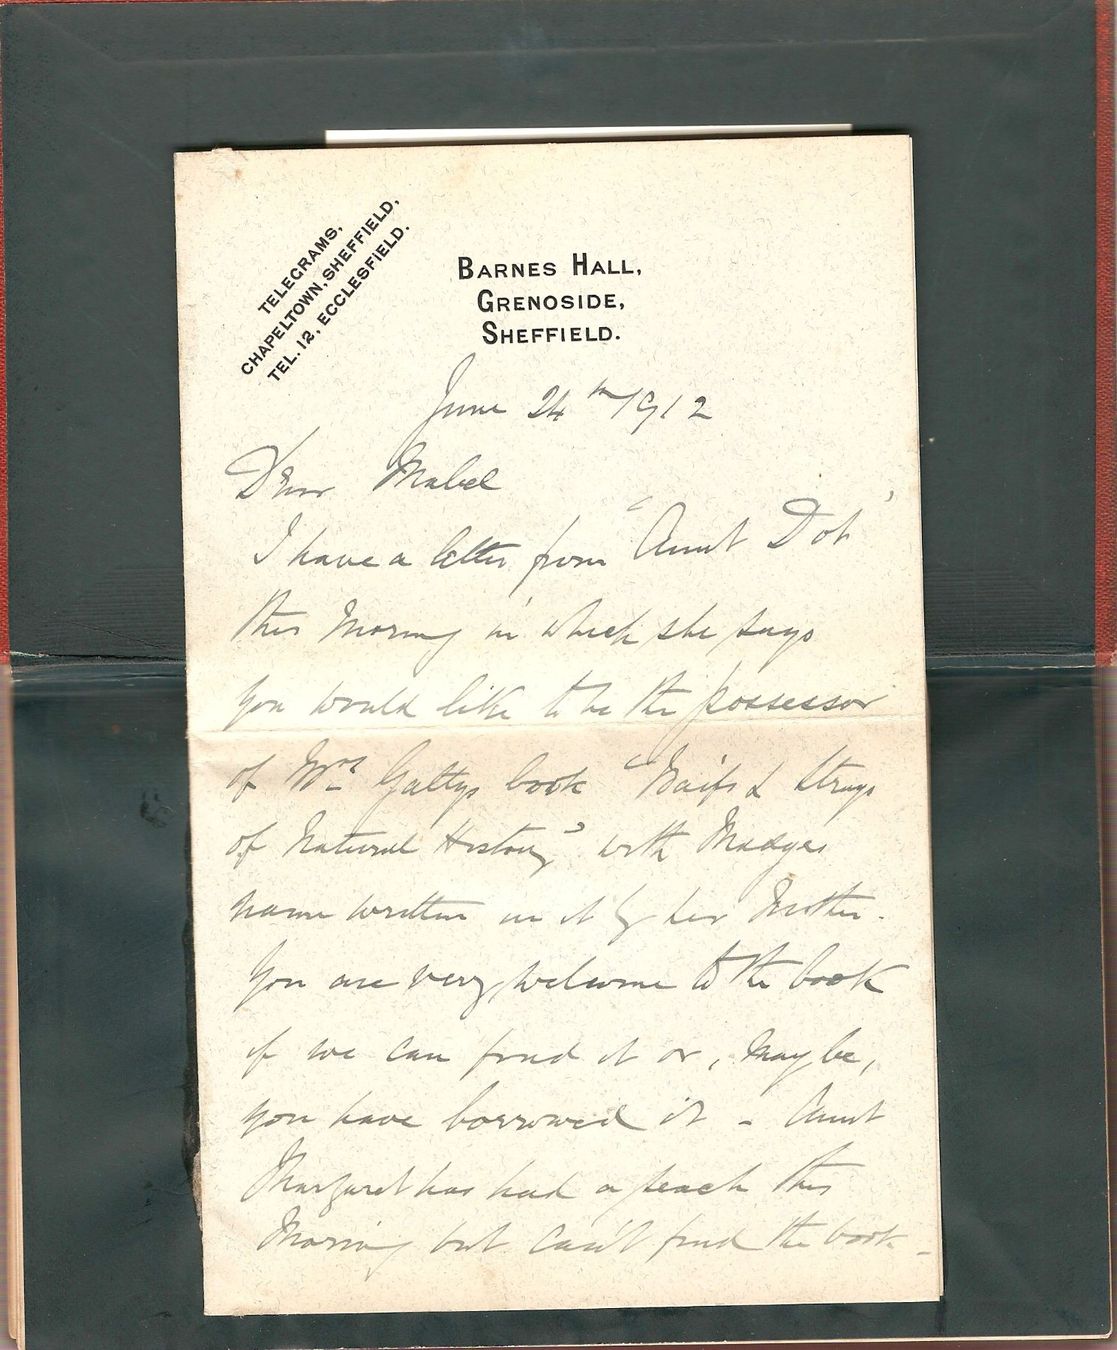 TELEGRAMS,
CHAPELTOWN, SHEFFIELD,
TEL. 12, ECCLESFIELD.
BARNES HALL,
GRENOSIDE,
SHEFFIELD.
June 24th 1912
Dear Mabel
I have a letter from "Aunt Dot"
this morning in which she says
you would like to be the possessor
of Mrs Gattys book "Waifs & Strays
of Natural History" with Madges
name written in it by her Mother.
You are very welcome to the book
if we can find it or, may be,
you have borrowed it - Aunt
Margaret has had a search this
Morning but can't find the book -